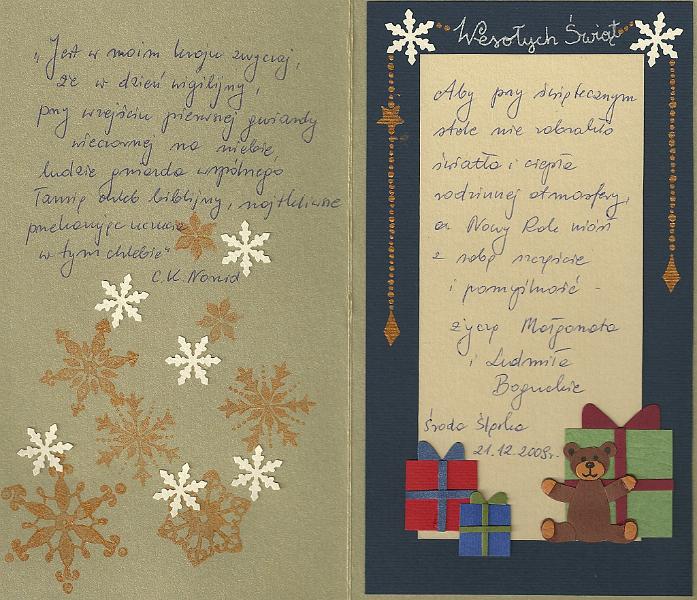 „Jest w moim kraju zwyczaj,
że w dzień wigilijny,
przy wzejściu pierwszej gwiazdy
wieczornej na niebie,
ludzie gniazda wspólnego
łamią chleb biblijny, najtkliwsze
przekazując uczucia
w tym chlebie"
C.K. Norwid
Wesołych Świąt
Aby przy świątecznym
stole nie zabrakło
światła i ciepła
rodzinnej atmosfery,
a Nowy Rok niósł
z sobą szczęście
i pomyślność -
życzą Małgorzata
i Ludmiła
Boguckie
Środa Śląska
21.12.2009r.